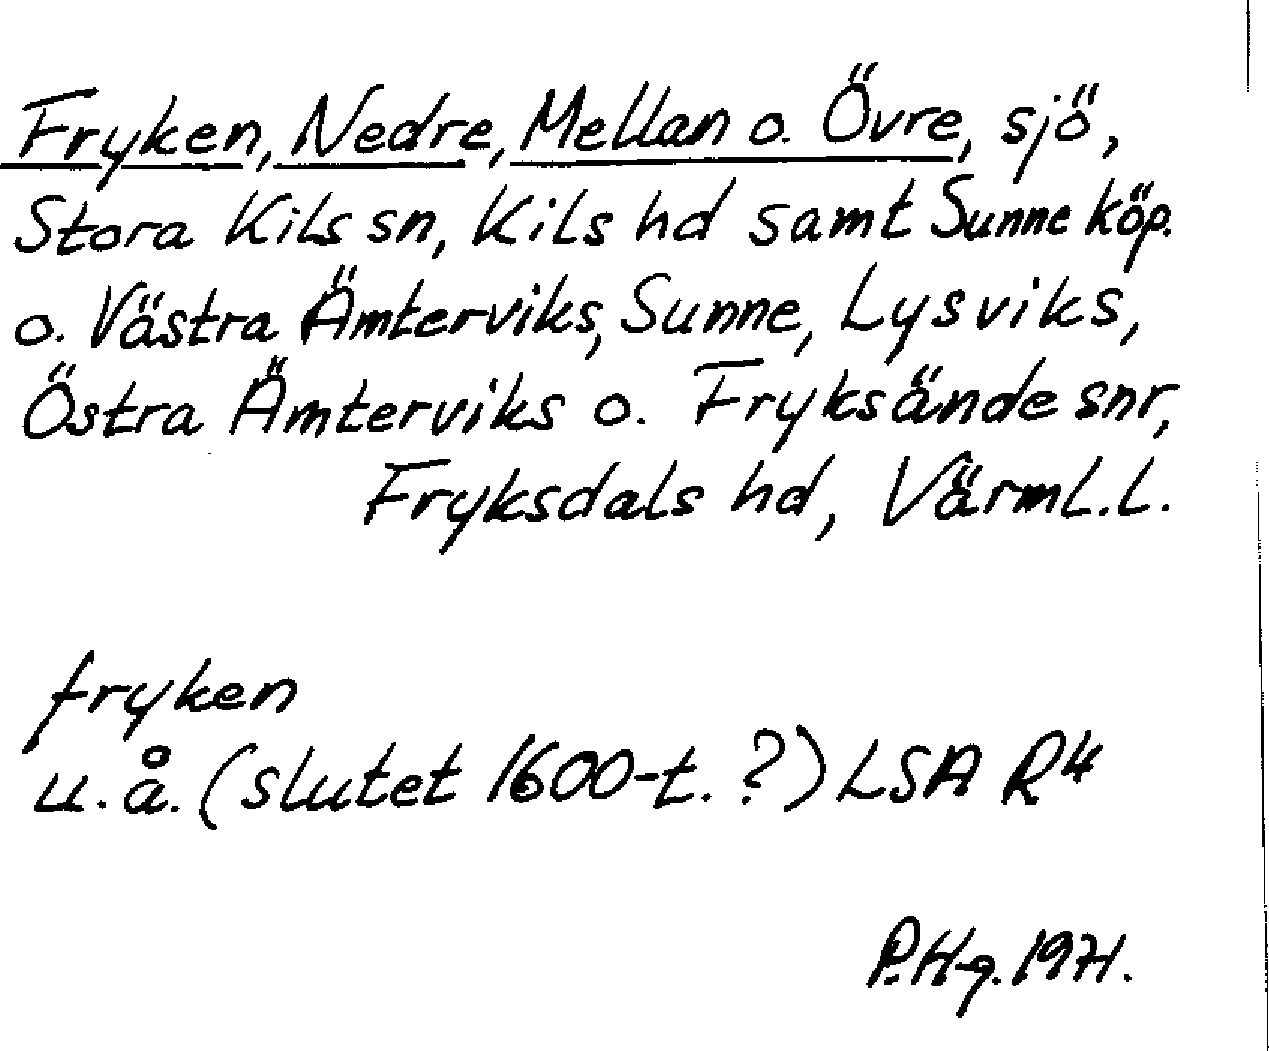 Fryken, Nedre, Mellan o. Övre, sjö,
Stora Kils sn, Kils hd samt Sunne köp.
o. Västra Ämterviks, Sunne, Lysviks,
Östra Ämterviks o. Fryksände snr,
Fryksdals hd, Värml.l.
fryken
u.å. (slutet 1600-t. ?) LSA R4
P.Hg. 1971.